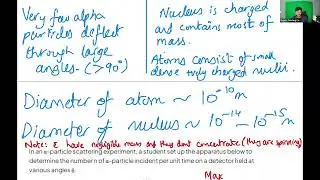 Very few alpha
particles deflect
through large
angles. (>90°)
Nucleus is charged
and contains most of
mass.
Atoms consist of small
dense +vely charged nuclei.
Diameter of atom ~ 10^-10 m
Diameter of nucleus ~ 10^-14 - 10^-15 m
Note: e have negligible mass and they dont concentrate (they are spinning)
In an α-particle scattering experiment, a student set up the apparatus below to
determine the number n of α-particle incident per unit time on a detector held at
various angles
Max